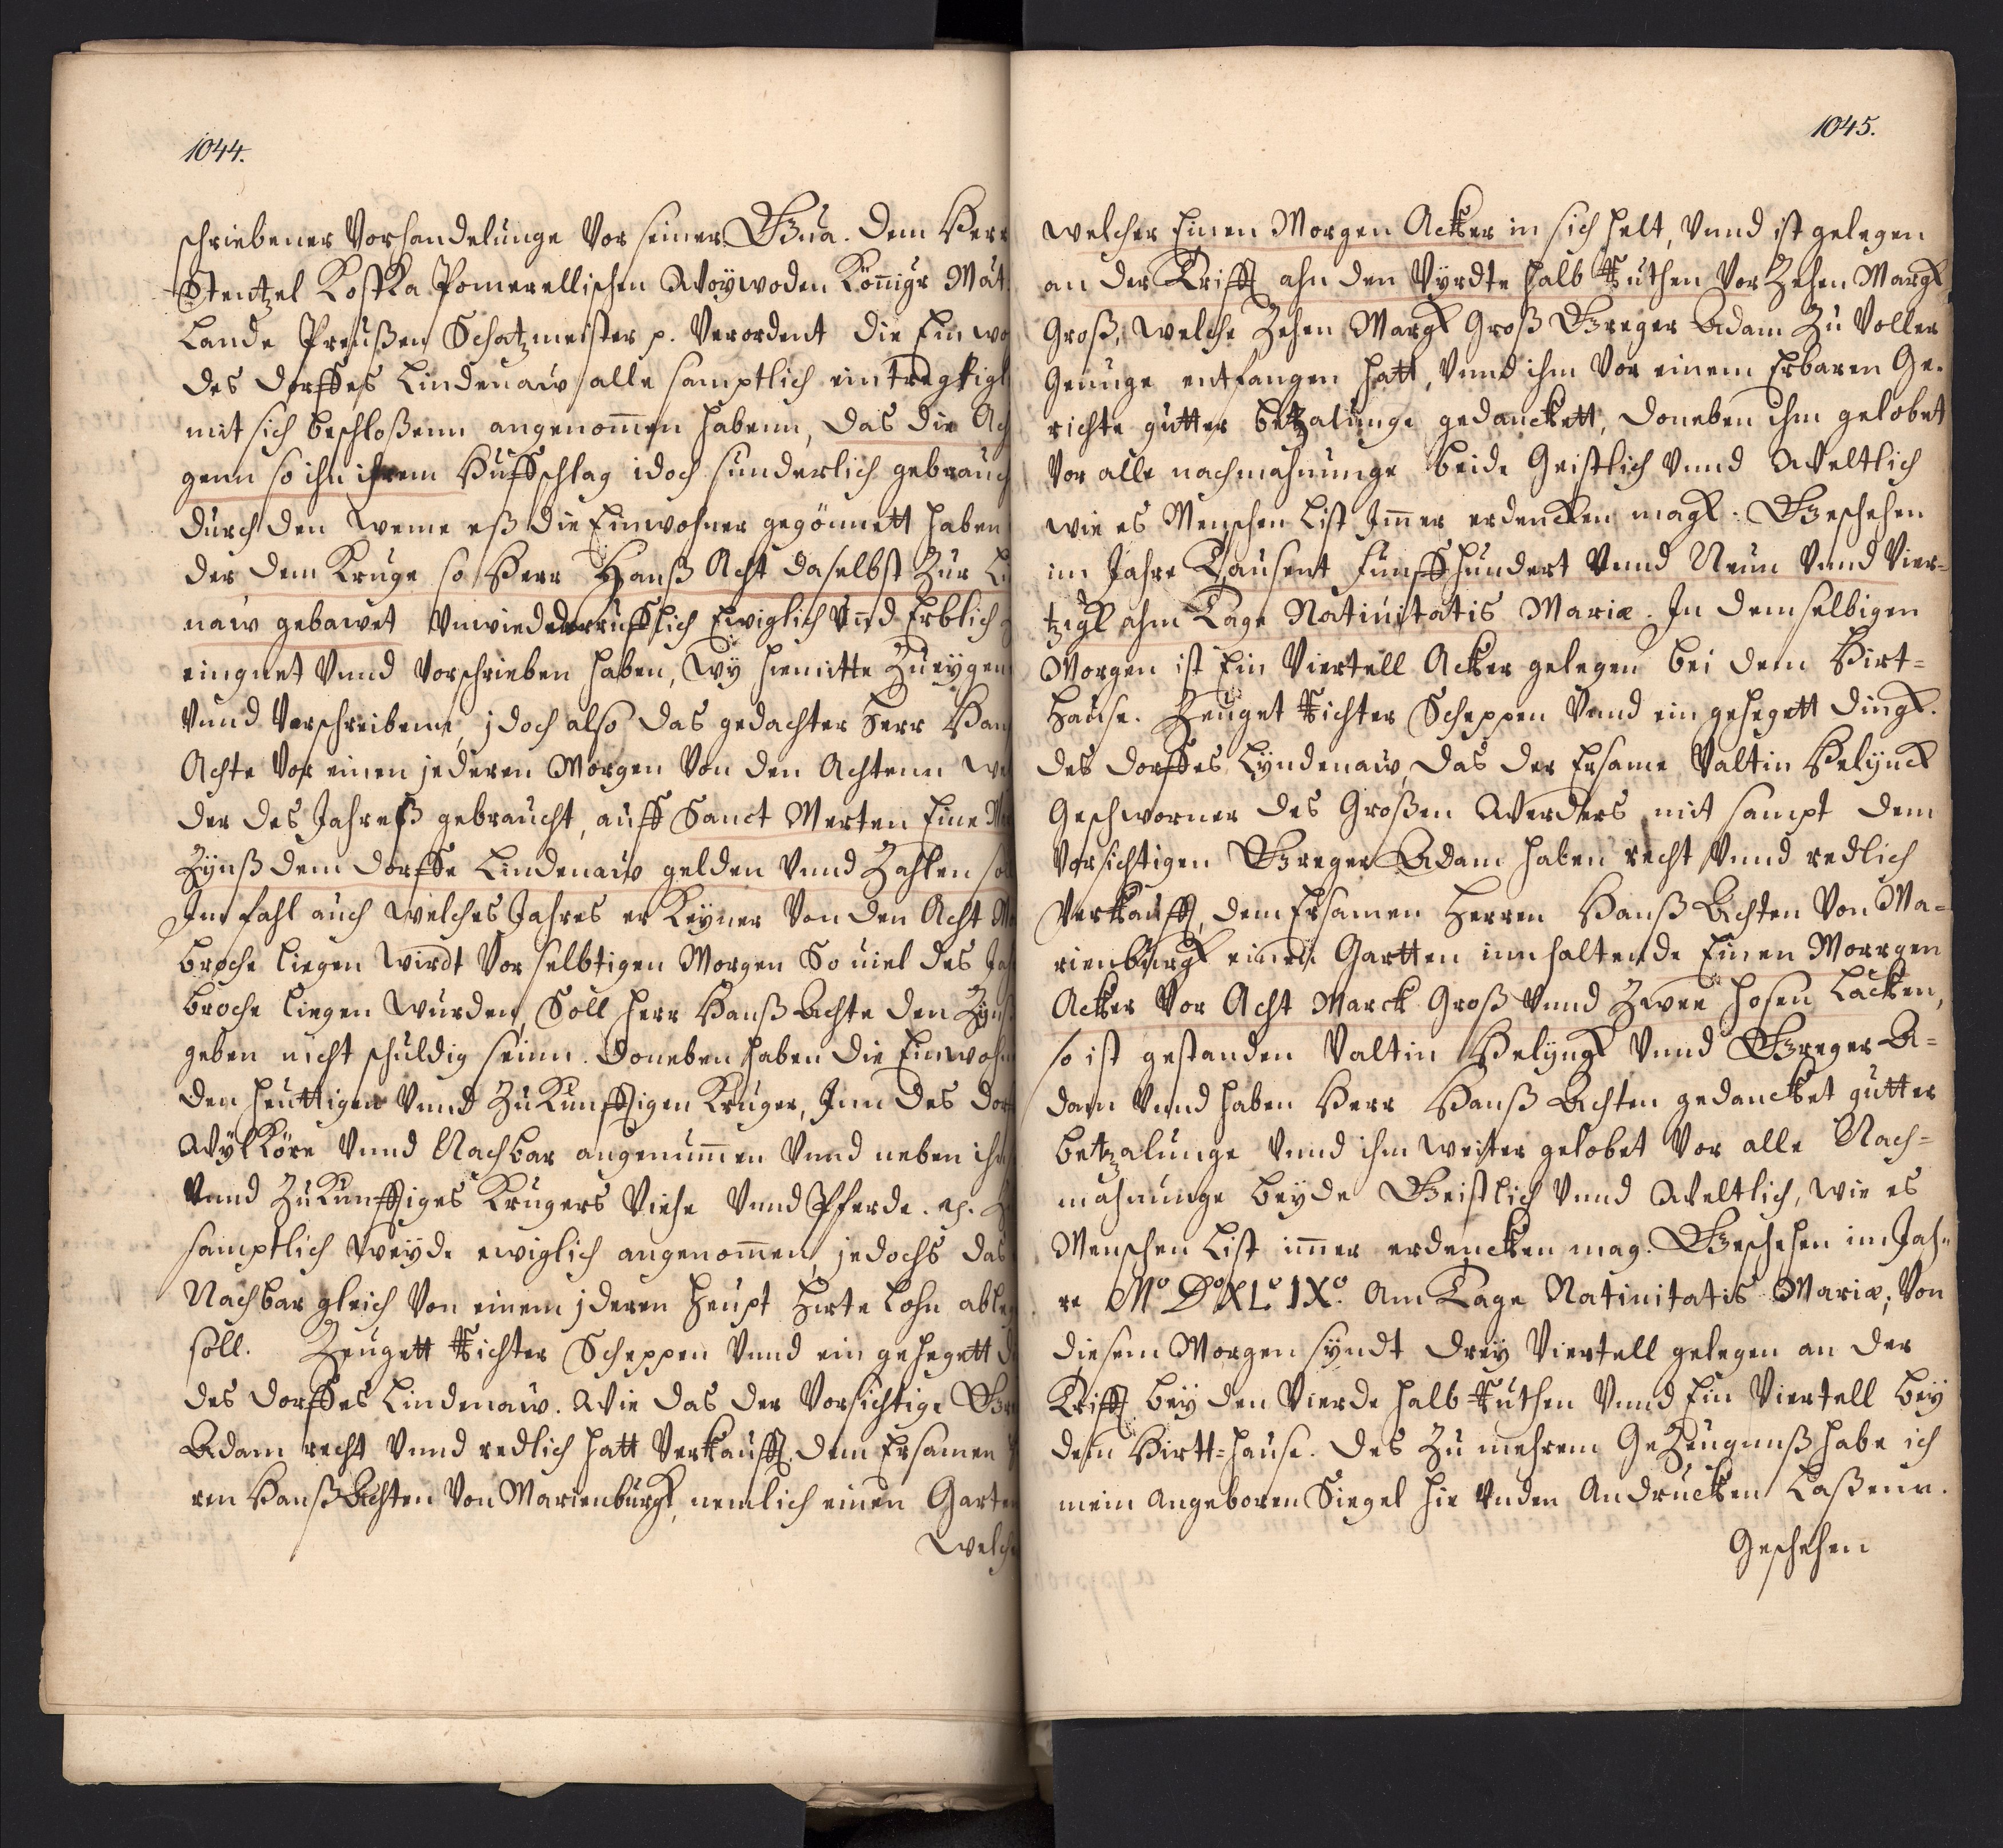 1044.
schriebener Vorhandelunge Vor seiner Gna. dem Herr
Stentzel Kostka Pomerellischen Woÿwoden Könnigr Mät.
Lande Preußen Schatzmeister p. Verordent die Einwo
des dorffes Lindenaw alle samptlich eintregtigl
mit sich beschloßenn angenommen habenn, das die Ach
genn so ihn ihrem Huffschlag idoch sunderlich gebrauch
durch den weme eß die Einwohner gegönnett haben
der dem Kruge so Herr Hanß Acht daselbst Zur Li
naw gebawet Vnwiederrufflich Ewiglich Vnd Erblich
eingnet Vnnd Vorschrieben haben, Wÿ hiemitte Zueÿgen
Vnnd Verschreibenn, jdoch also das gedachter Herr Han
Achte Vor einen jederen Morgen Von den Achtenn We
der des Jahreß gebraucht, auff Sanct Merten Eine M
Zÿnß dem dorffe Lindenaw gelden Vnnd Zahlen sol
Im fahl auch welches Jahres er Keÿner Von den Acht M
broche liegen wirdt Vor selbtigen Morgen So uiel des Jah
broche liegen wurden, Soll Herr Hanß Achte den Zÿnß
geben nicht schuldig seinn. doneben haben die Einwohn
den heuttigen Vnnd ZuKunfftigen Kruger, Inn des dor
WÿlKöre Vnnd Nachbar angenummen Vnnd neben ih
Vnnd ZuKunfftiges Krugers Viehe Vnnd Pferde. ec. Z
samptlich Weÿde ewiglich angenommen, jedochs das
Nachbar gleich Von einem jderen heupt Hirte lohn able
soll. Zeugett Richter Scheppen Vnnd ein gehegett d
des dorffes Lindenaw. Wie das der Vorsichtige Gre
Adam recht Vnnd redlich hatt Verkaufft. dem Ersamen H
ren Hanß Achten Von Marienburgk, nemlich einen Garten
Welche
1045.
welcher Einen Morgen Acker in sich helt, Vnnd ist gelegen
an der Trifft ahn den Vÿrdte halb Ruthen Vor Zehen Margk
Groß, welche Zehen Margk Groß Greger Adam Zu Voller
Genuge entfangen hatt, Vnnd ihm Vor einem Erbaren Ge-
richte gutter betzalunge gedanckett, doneben ihm gelobet
Vor alle nachmahnunge beide Geistlich Vnnd Weltlich
wie es Menschen List Immer erdencken magk. Geschehen
im Jahre Tausent Funffhundert Vnnd Neun Vnnd Vier-
tzigk ahm Tage Natiuitatis Mariæ. In demselbigen
Morgen ist Ein Viertell Acker gelegen bei dem Hirt-
Hause. Zeuget Richter Scheppen Vnnd ein gehegett dingk.
des dorffes Lÿndenaw, das der Ersame Valtin Helÿnck
Geschworner des Großen Werders mit sampt dem
Vorsichtigen Greger Adam haben recht Vnnd redlich
Verkaufft, dem Ersamen Herren Hanß Achten Von Ma-
rienburgk einen Gartten innhaltende Einen Morrgen
Acker Vor Acht Marck Groß Vnnd Zwee hosen Lacken,
so ist gestanden Valtin Helÿngk Vnnd Greger A-
dam Vnnd haben Herr Hanß Achten gedancket gutter
betzalunge Vnnd ihm weiter gelobet Vor alle Nach-
mahnunge beÿde Geistlich Vnnd Weltlich, wie es
Menschen List immer erdencken mag. Geschehen im Jah-
re Mº DºXL.º IXº. Am Tage Natiuitatis Mariæ, Von
diesem Morgen sÿndt dreÿ Viertell gelegen an der
Trifft beÿ den Vierde halb Ruthen Vnnd Ein Viertell beÿ
dem Hirtt-hause. des Zu mehrem GeZeugnuß habe ich
mein angeboren Siegel hie Vnden Andrucken Laßenn.
Geschehen